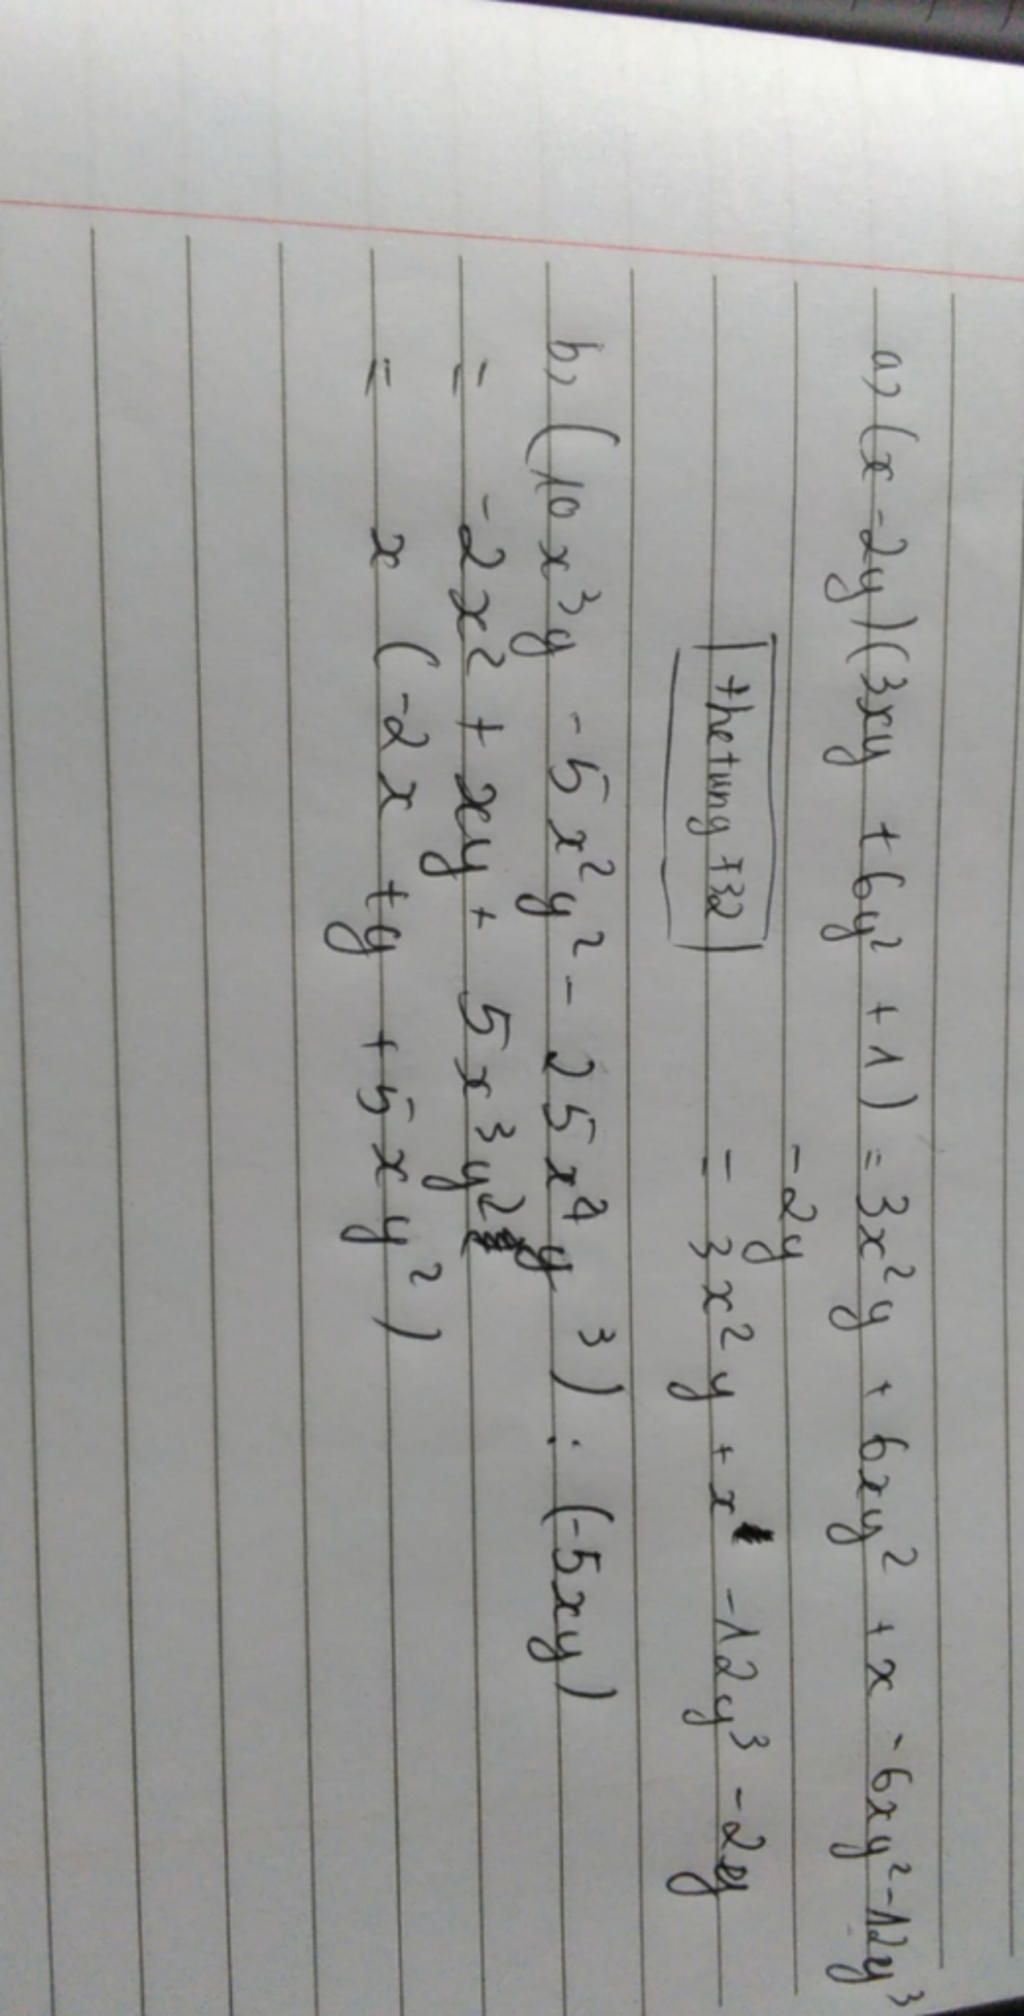 a) (x - 2y)(3xy + 6y² + 1) = 3x²y + 6xy² + x - 6xy² - 12y³
- 2y
|thetung +32| = 3x²y + x - 12y³ - 2y
b) (10x³y - 5x²y² - 25x⁴y³) : (-5xy)
= -2x² + xy + 5x³y²
= x (-2x + y + 5xy²)